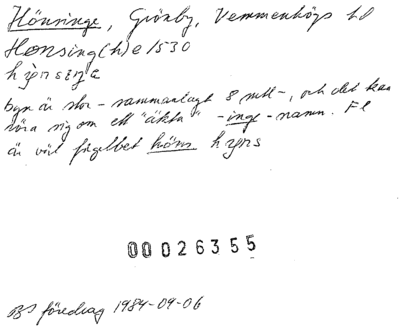 Hönsinge, Grönby, Vemmenhögs hd
Hønsing(h)e 1530
byn är stor - sammanlagt 8 mtl -, och det kan
röra sig om ett "äkta" -inge-namn. Fl
är väl fågelbet höns
00026355
föredrag 1984-09-06